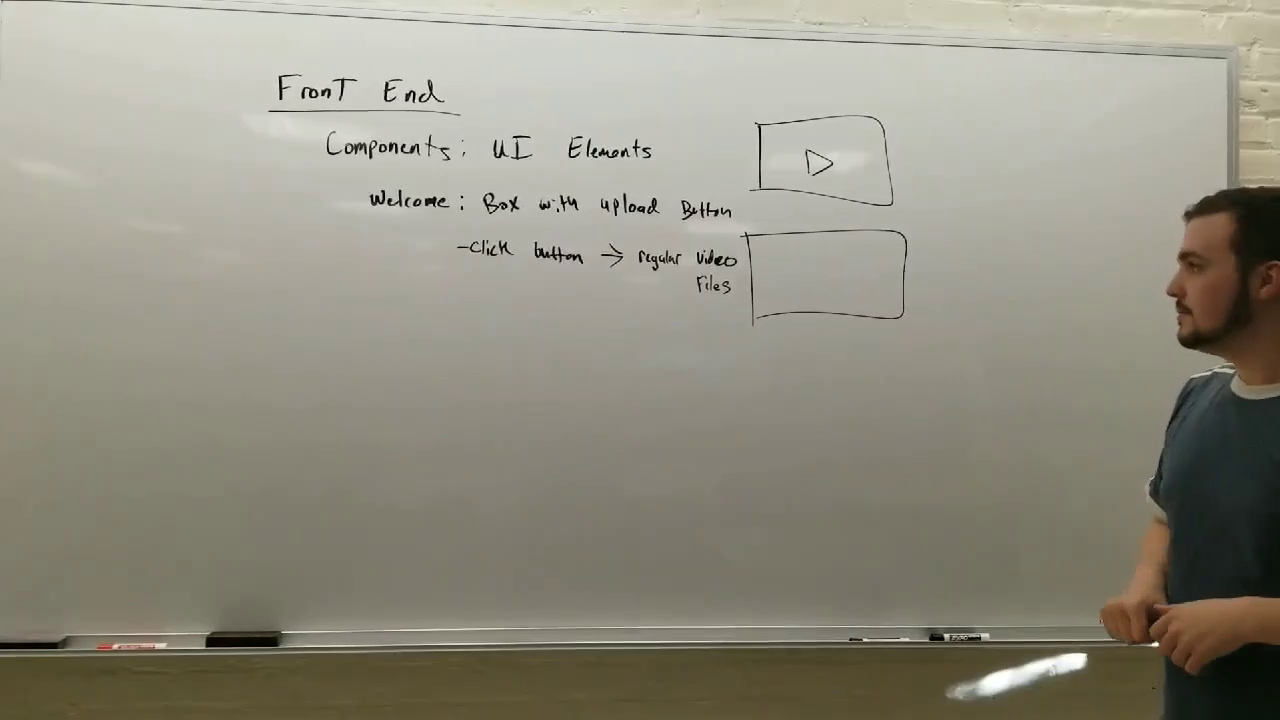 Front End
Components: UI Elements
Welcome: Box with upload Button
-click button → regular video
Files
EXPO